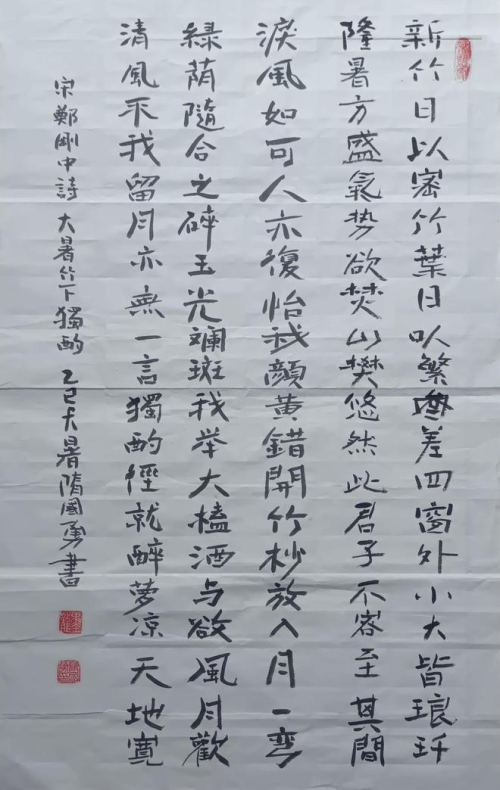 新竹日以密竹葉日以繁參差四窗外小大皆琅玕
隆暑方盛氣势欲焚山樊悠然此君子不容至其間
淚風如可人亦復怡我顏黄錯開竹杪放入月一彎
緑荫隨合之碎玉光斕斑我举大榼酒与欲風月歡
清風不我留月亦無一言獨酌徑就醉夢凉天地寬
宋鄭剛中詩 大暑竹下獨酌 乙巳大暑隋國勇書